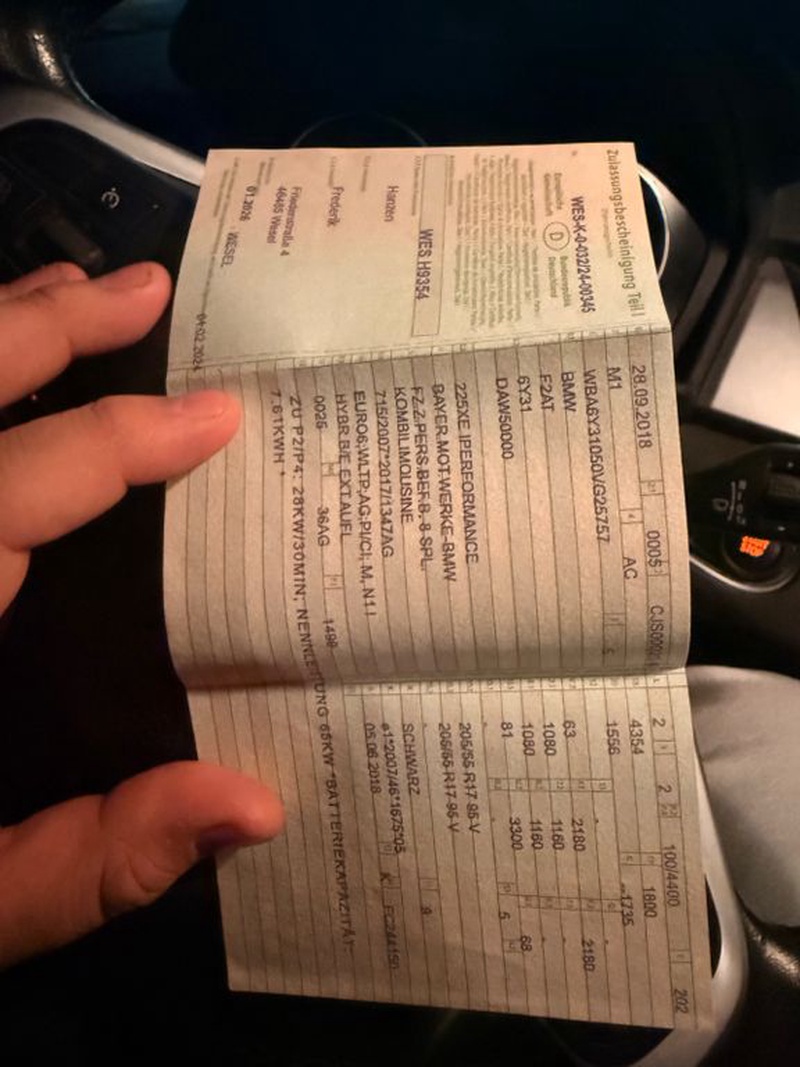 Zulassungsbescheinigung Teil I
WES-K-0-032/24-00345
Europäische Gemeinschaft
D
Bundesrepublik Deutschland
WES H9354
Hanzen
Frederik
Friedenstraße 4
46485 Wesel
01.2026
WESEL
01.02.2024
28.09.2018 0005
M1 AC
WBA6Y31050VG25757
BMW
F2AT
6Y31
DAW50000
225XE IPERFORMANCE
BAYER.MOT.WERKE-BMW
FZ.Z.PERS.BEF.B. 8 SPL.
KOMBILIMOUSINE
715/2007*2017/1347AG
EURO6;WLTP;AG;PI/CI; M, N1 I
HYBR.B/E EXT.AUFL
0025 36AG 1499
ZU P2/P4: 28KW/30MIN; NENNLEISTUNG 65KW *BATTERIEKAPAZITÄT:
7.61KWH *
2 2 100/4400 202
4354 1800
1556 1735
63 2180 2180
1080 1160
1080 1160 68
81 3300 5
205/55 R17 95 V
205/55 R17 95 V
SCHWARZ 9
e1*2007/46*1675*05
05.06.2018 K